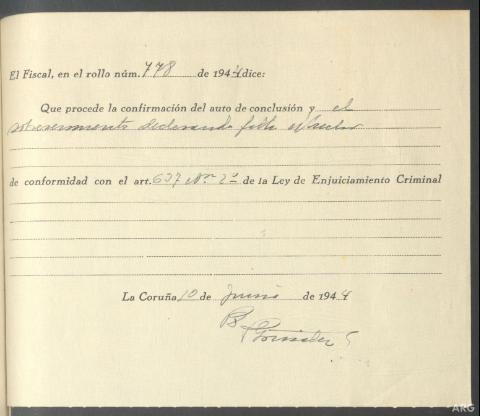 El Fiscal, en el rollo núm. 778 de 1944 dice:
Que procede la confirmación del auto de conclusión y el
sobreseimiento declarando falta
de conformidad con el art. 637 Nº 2º de la Ley de Enjuiciamiento Criminal
La Coruña, 10 de junio de 1944
ARG